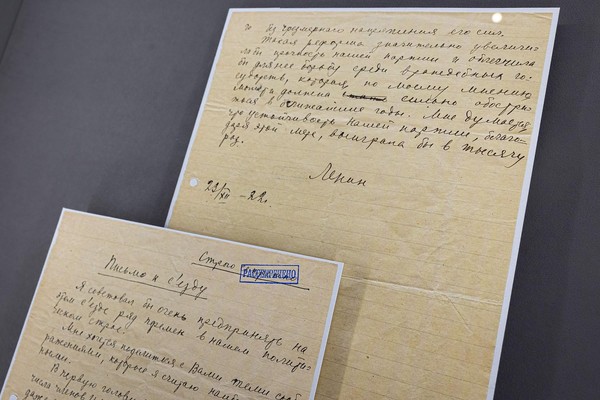 го без чрезмерного напряжения его сил.
Такая реформа значительно увеличи-
ла бы прочность нашей партии и облегчила
бы для нее борьбу среди враждебных го-
сударств, которая, по моему мнению,
может и должна сильно обостри-
ться в ближайшие годы. Мне думается,
что устойчивость нашей партии, благо-
даря этой мере, выиграла бы в тысячу
раз.
Ленин
23/XII - 22 г.
Строго
РАССЕКРЕЧЕНО
Письмо к с'езду
Я советовал бы очень предпринять на
этом с'езде ряд перемен в нашем полити-
ческом строе.
Мне хочется поделиться с Вами теми сооб-
ражениями, которые я считаю наибо
В первую голову
число членов